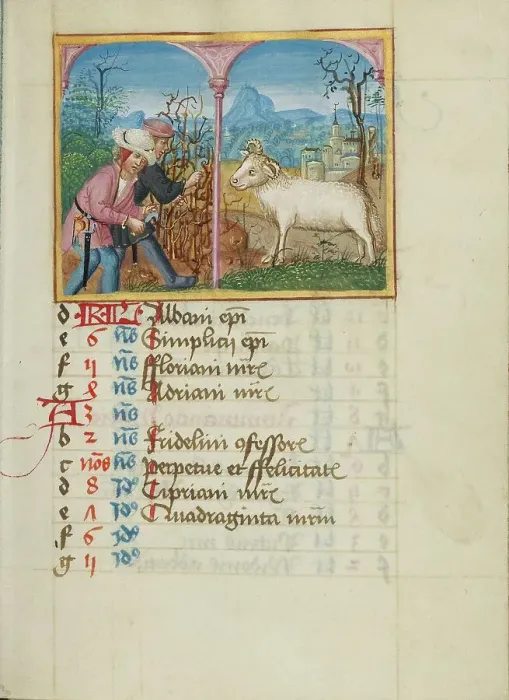 d KL Albani ep̄i
e 6 nō Simplicij ep̄i
f 5 nō ffloriani mr̄e
g 4 nō Adriani mr̄e
A 3 nō
b 2 nō Fridelini ꝯfessore
c nōs nō Perpetue et ffelicitate
d 8 Idꝰ Cipriani mr̄e
e 7 Idꝰ Quadraginta mr̄m
f 6 Idꝰ
g 5 Idꝰ